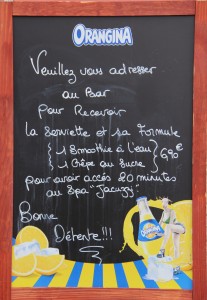 ORANGINA
Veuillez vous adresser
au Bar
pour Recevoir
la Serviette et sa Formule
{ 1 Smoothie à l'eau } 6,90€
{ 1 Crêpe au Sucre
pour avoir accés 20 minutes
au Spa "Jacuzy"
Bonne
Détente!!!
Orangina